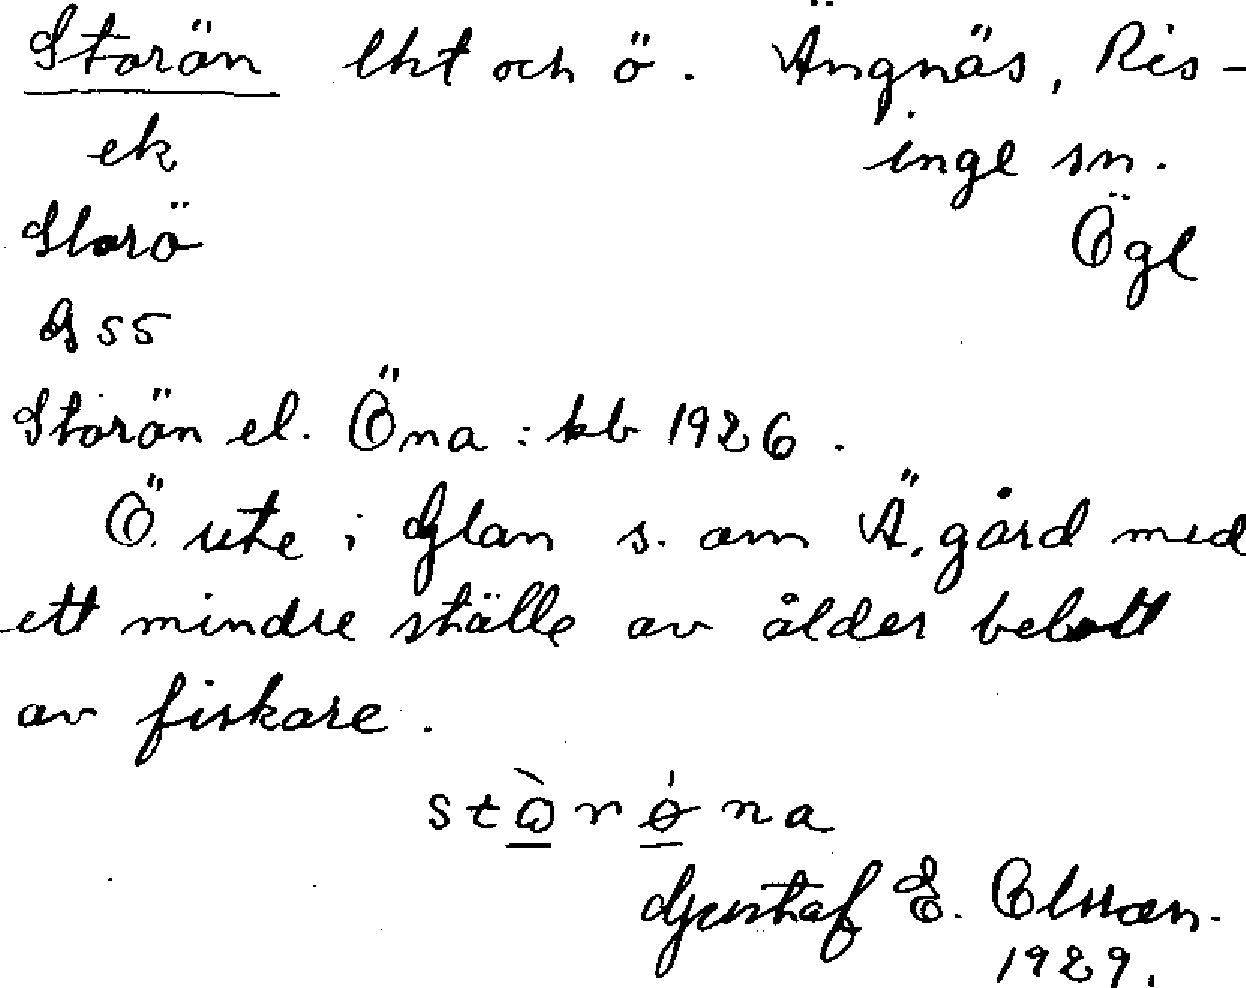 Storän lht och ö. Ängnäs, Ris-
ek inge sn.
Storö Ögl
G S5
Storän el. Öna : kb 1926.
Ö. ute i Glan s. om Ä. gård med
ett mindre ställe av ålder bebott
av fiskare.
Gustaf E. Olsson.
1929.